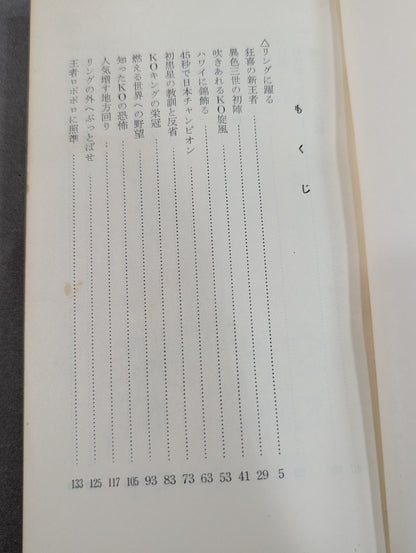 もくじ
△リングに躍る
狂喜の新王者 5
異色三世の初陣 29
吹きあれるKO旋風 41
ハワイに錦飾る 53
45秒で日本チャンピオン 63
初黒星の教訓と反省 73
KOキングの栄冠 83
燃える世界への野望 93
知ったKOの恐怖 105
人気増す地方回り 117
リングの外へぶっとばせ 125
王者ロポポロに照準 133